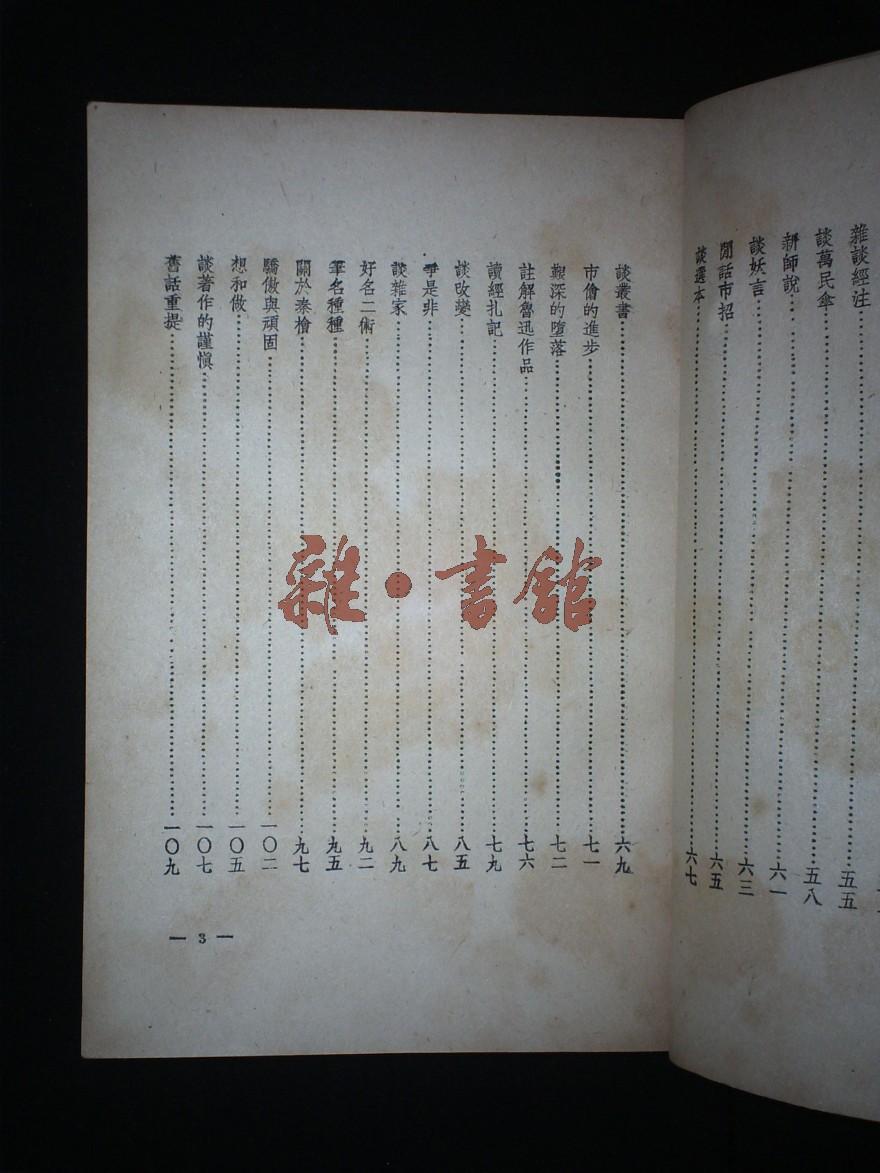 雜談經注……五五
談萬民傘……五八
新師說……六一
談妖言……六三
閒話市招……六五
談選本……六七
談叢書……六九
市儈的進步……七一
艱深的墮落……七二
註解魯迅作品……七六
讀經扎記……七九
談改變……八五
爭是非……八七
談雜家……八九
好名二術……九二
筆名種種……九五
關於秦檜……九七
驕傲與頑固……一〇二
想和做……一〇五
談著作的謹慎……一〇七
舊話重提……一〇九
— 3 —
雜·書館